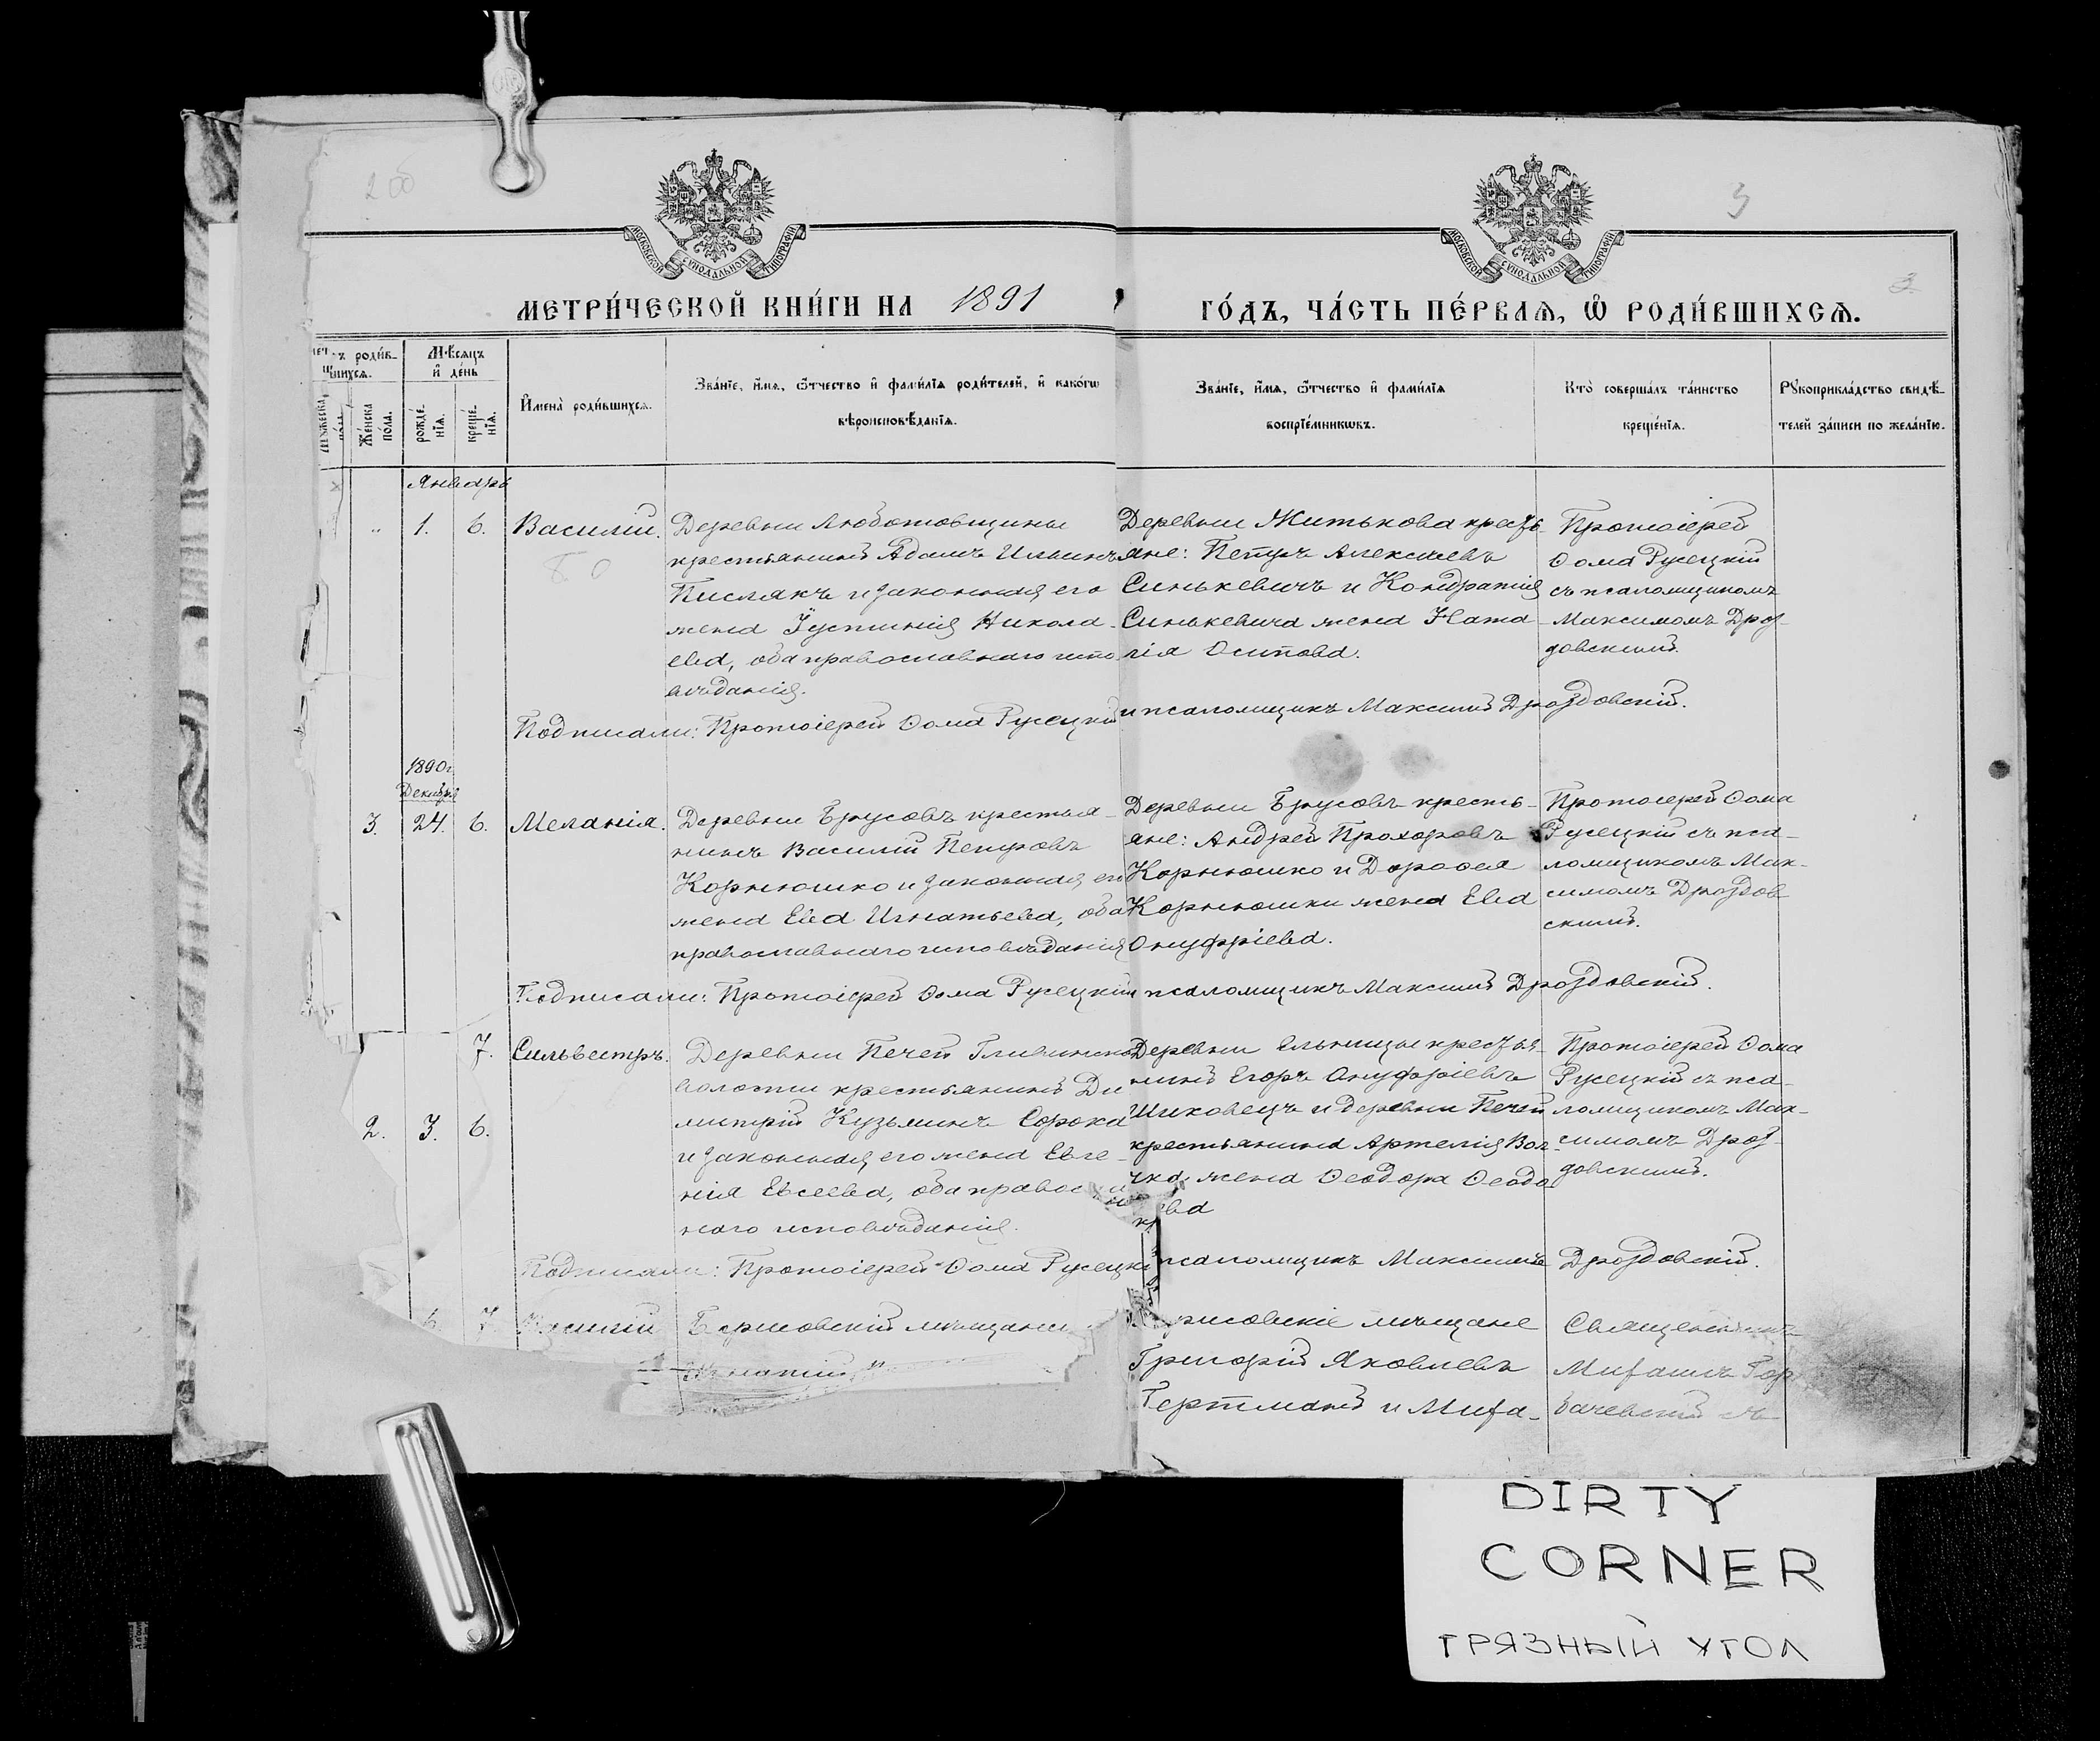 2об
3
3.
МОСКОВСКОЙ СѴНОДАЛЬНОЙ ТИПОГРАФІИ
МОСКОВСКОЙ СѴНОДАЛЬНОЙ ТИПОГРАФІИ
МЕТРИ́ЧЕСКОЙ КНИ́ГИ НА 1891 ГО́ДЪ, ЧА́СТЬ ПЕ́РВАѦ, Ѽ РОДИ́ВШИХСѦ.
роди́в-
шихсѧ.
Же́нска по́ла.
Мѣ́сѧцъ и҆ де́нь
рожде́-нїѧ.
креще́-нїѧ.
И҆мена̀ роди́вшихсѧ.
Зва́нїе, и҆́мѧ, ѻ҆́тчество и҆ фамі́лїѧ роди́телей, и҆ како́гѡ
вѣроисповѣ́данїѧ.
Зва́нїе, и҆́мѧ, ѻ҆́тчество и҆ фами́лїѧ
воспрїе́мникѡвъ.
Кто̀ соверша́лъ та́инство
креще́нїѧ.
Рꙋкоприкла́дство свидѣ́-
телей за́писи по жела́нїю.
Январь
1. 6. Василій.
Деревни Любатовщины
крестьянинъ Адамъ Ильинъ
Пислякъ и законная его
жена Іустинія Никола-
ева, оба православнаго испо
вѣданія.
Деревни Житькова кресть
яне: Петръ Алексѣевъ
Синькевичъ и Кондратія
Синькевича жена Ната
лія Осипова.
Протоіерей
Ѳома Русецкій
съ псаломщикомъ
Максимомъ Дроз-
довскимъ.
Подписали: Протоіерей Ѳома Русецкій и псаломщикъ Максимъ Дроздовскій.
1890г.
Декабря
3. 24. 6. Меланія.
Деревни Брусовъ крестья-
нинъ Василій Петровъ
Корнюшко и законная его
жена Ева Игнатьева, оба
православнаго исповѣданія
Деревни Брусовъ кресть-
яне: Андрей Прохоровъ
Корнюшко и Дороѳея
Корнюшки жена Ева
Онуфріева.
Протоіерей Ѳома
Русецкій съ пса-
ломщикомъ Мак-
симомъ Дроздов
скимъ.
Подписали: Протоіерей Ѳома Русецкій и псаломщикъ Максимъ Дроздовскій.
7. Сильвестръ.
2. 3. 6.
Деревни Печей Гливинской
волости крестьянинъ Ди
митрій Кузьминъ Сорока
и законная его жена Евге-
нія Евсеева, оба правос
наго исповѣданія.
Деревни Ельницы крестья-
нинъ Егоръ Онуфріевъ
Шиковецъ и деревни Печей
крестьянина Артемія Вол-
чка жена Ѳеодора Ѳеодо
ева
Протоіерей Ѳома
Русецкій съ пса-
ломщикомъ Мак-
симомъ Дроз-
довскимъ.
Подписали: Протоіерей Ѳома Русецкій псаломщикъ Максимъ Дроздовскій.
6. 7. Василій
Борисовскій мѣщанинъ
Игнатій
рисовскіе мѣщане
Григорій Яковлевъ
Гертманъ и Миха-
Священникъ
Михаилъ Гор
бачевскій съ
DIRTY
CORNER
ГРЯЗНЫЙ УГОЛ